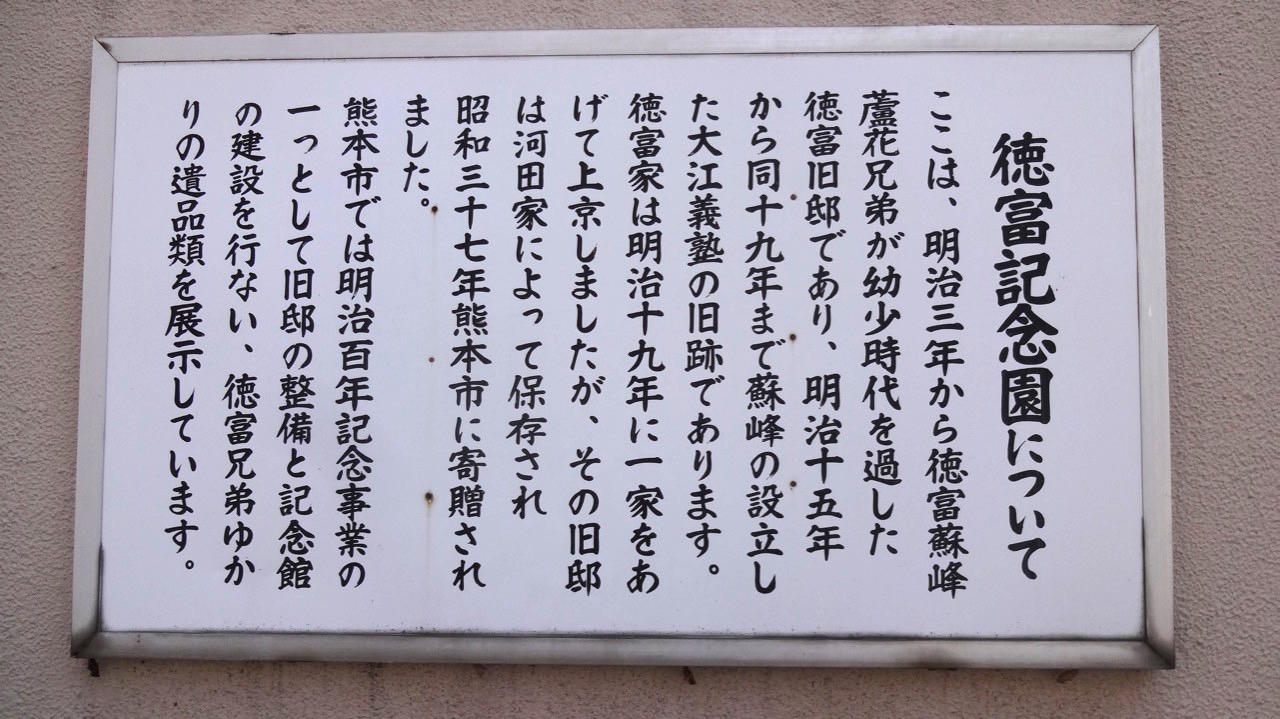 徳富記念園について
ここは、明治三年から徳富蘇峰
蘆花兄弟が幼少時代を過した
徳富旧邸であり、明治十五年
から同十九年まで蘇峰の設立し
た大江義塾の旧跡であります。
徳富家は明治十九年に一家をあ
げて上京しましたが、その旧邸
は河田家によって保存され
昭和三十七年熊本市に寄贈され
ました。
熊本市では明治百年記念事業の
一っとして旧邸の整備と記念館
の建設を行ない、徳富兄弟ゆか
りの遺品類を展示しています。